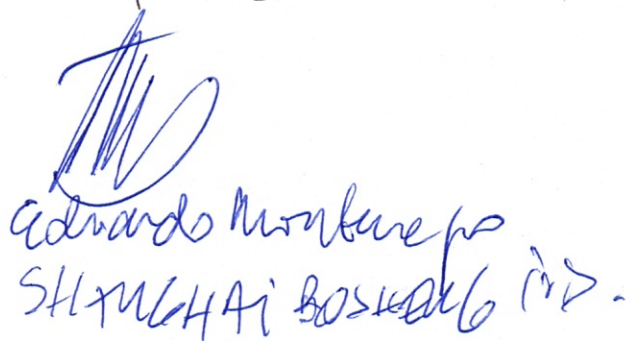 Eduardo Montenegro
SHANGHAI BOSHENG IND.